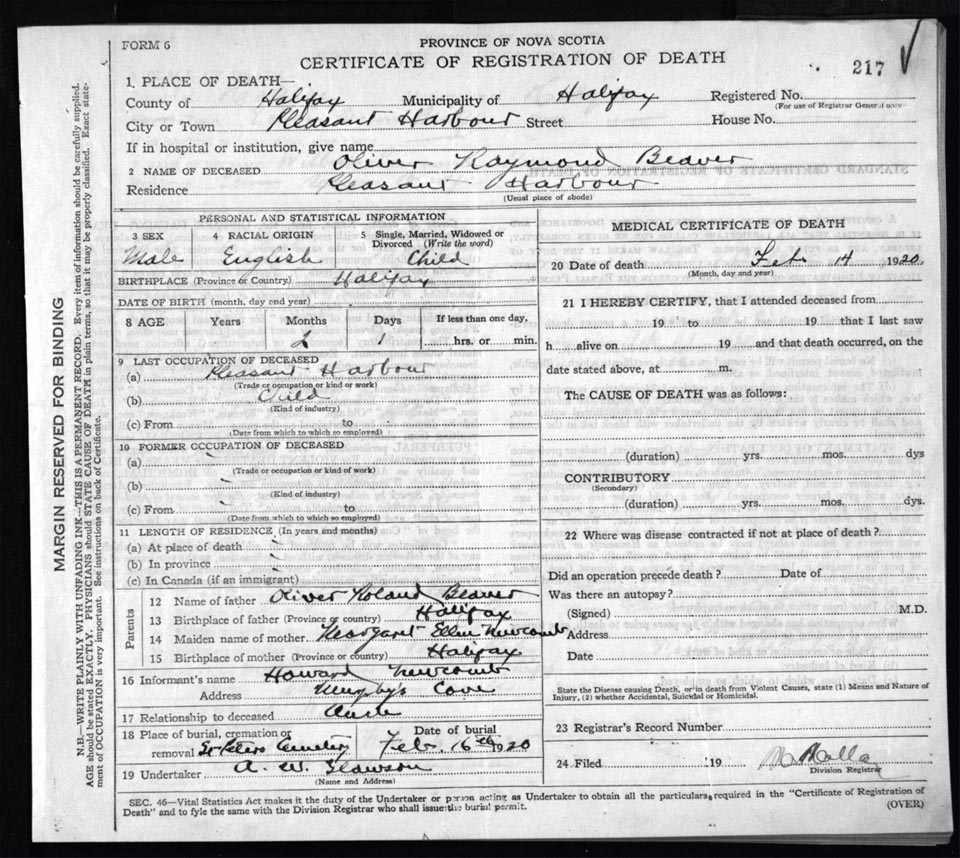 FORM 6
PROVINCE OF NOVA SCOTIA
CERTIFICATE OF REGISTRATION OF DEATH
217
1. PLACE OF DEATH—
County of Halifax Municipality of Halifax Registered No.
(For use of Registrar General only
City or Town Pleasant Harbour Street House No.
If in hospital or institution, give name
2 NAME OF DECEASED Oliver Raymond Beaver
Residence Pleasant Harbour
(Usual place of abode)
PERSONAL AND STATISTICAL INFORMATION
3 SEX 4 RACIAL ORIGIN 5 Single, Married, Widowed or Divorced (Write the word)
Male English Child
BIRTHPLACE (Province or Country) Halifax
DATE OF BIRTH (month, day and year)
8 AGE Years Months Days If less than one day,
2 1 hrs. or min.
9 LAST OCCUPATION OF DECEASED
(a) Pleasant Harbour
(Trade or occupation or kind or work)
(b) Child
(Kind of industry)
(c) From to
(Date from which to which so employed)
10 FORMER OCCUPATION OF DECEASED
(a)
(Trade or occupation or kind or work)
(b)
(Kind of industry)
(c) From to
(Date from which to which so employed)
11 LENGTH OF RESIDENCE (In years and months)
(a) At place of death
(b) In province
(c) In Canada (if an immigrant)
Parents
12 Name of father Oliver Roland Beaver
13 Birthplace of father (Province or country) Halifax
14 Maiden name of mother Margaret Ellen Newcomb
15 Birthplace of mother (Province or country) Halifax
16 Informant's name Howard Newcomb
Address Murphy's Cove
17 Relationship to deceased
18 Place of burial, cremation or removal St Peters Cemetery
Date of burial Feb. 16th 1920
19 Undertaker A. W.
(Name and Address)
MEDICAL CERTIFICATE OF DEATH
20 Date of death Feb 14 1920.
(Month, day and year)
21 I HEREBY CERTIFY, that I attended deceased from
19 to 19 that I last saw
h alive on 19 and that death occurred, on the
date stated above, at m.
The CAUSE OF DEATH was as follows:
(duration) yrs. mos. dys
CONTRIBUTORY
(Secondary)
(duration) yrs. mos. dys.
22 Where was disease contracted if not at place of death?
Did an operation precede death? Date of
Was there an autopsy?
(Signed) M.D.
Address
Date
State the Disease causing Death, or in death from Violent Causes, state (1) Means and Nature of
Injury, (2) whether Accidental, Suicidal or Homicidal.
23 Registrar's Record Number
24 Filed 19
Division Registrar
SEC. 46—Vital Statistics Act makes it the duty of the Undertaker or person acting as Undertaker to obtain all the particulars required in the "Certificate of Registration of
Death" and to fyle the same with the Division Registrar who shall issue the burial permit.
(OVER)
MARGIN RESERVED FOR BINDING
N.B.—WRITE PLAINLY WITH UNFADING INK—THIS IS A PERMANENT RECORD. Every item of information should be carefully supplied.
AGE should be stated EXACTLY. PHYSICIANS should STATE CAUSE OF DEATH in plain terms, so that it may be properly classified. Exact state-
ment of OCCUPATION is very important. See instructions on back of Certificate.